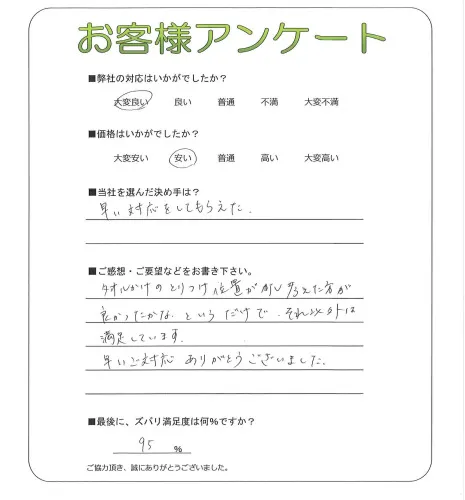 お客様アンケート
■弊社の対応はいかがでしたか？
大変良い 良い 普通 不満 大変不満
■価格はいかがでしたか？
大変安い 安い 普通 高い 大変高い
■当社を選んだ決め手は？
早い対応をしてもらえた.
■ご感想・ご要望などをお書き下さい。
タオルかけのとりつけ位置が少し考えた方が
良かったかな.というだけで.それ以外は
満足しています.
早いご対応 ありがとうございました.
■最後に、ズバリ満足度は何%ですか？
95 %
ご協力頂き、誠にありがとうございました。